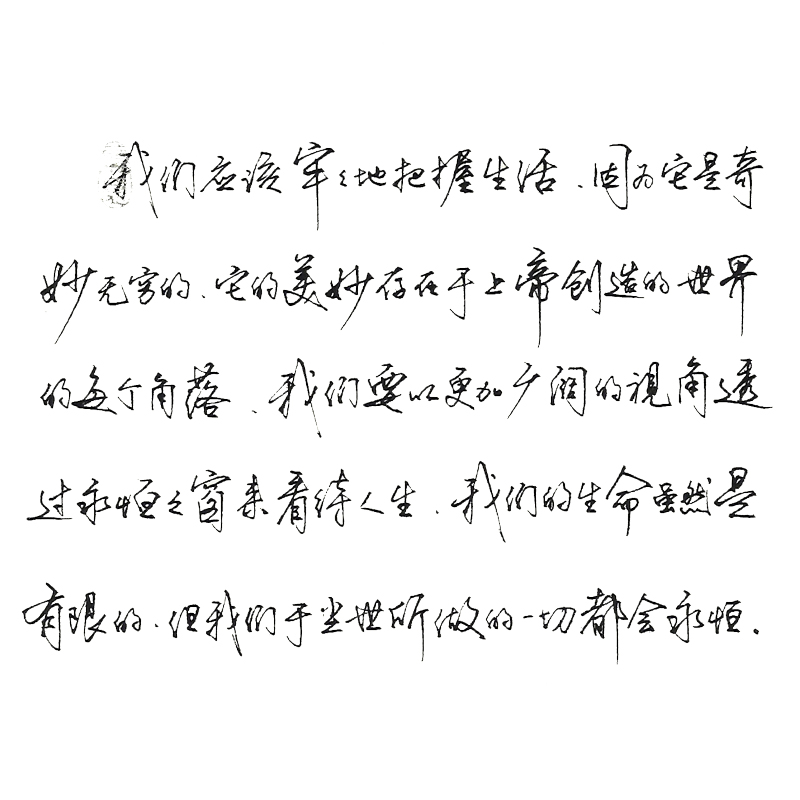 我们应该牢牢地把握生活、因为它是奇
妙无穷的、它的美妙存在于上帝创造的世界
的每个角落、我们要以更加广阔的视角透
过永恒之窗来看待人生、我们的生命虽然是
有限的、但我们于尘世所做的一切都会永恒.